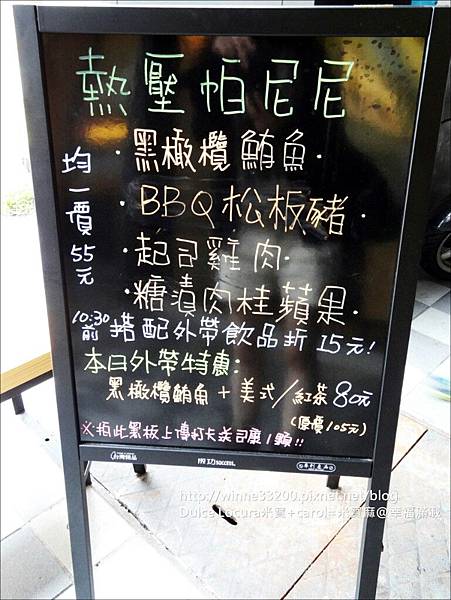 熱壓帕尼尼
均一價55元
·黑橄欖鮪魚·
·BBQ松板豬·
·起司雞肉·
·糖漬肉桂蘋果·
10:30前 搭配外帶飲品折15元!
本日外帶特惠:
黑橄欖鮪魚+美式/紅茶80元
(原價105元)
※拍此黑板上傳打卡送司康1顆!!
台灣精品
成功 SUCCESS.
專利產品
http://winne33200.pixnet.net/blog
Dulce Locura米寶+carol=米寶麻@幸福滿載